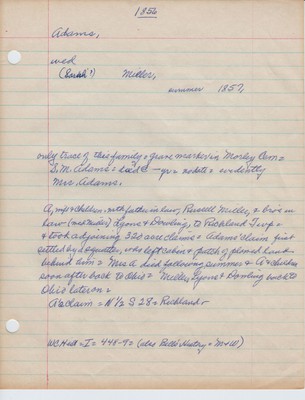 1856
Adams,
wed
(Sarah?) Miller,
summer 1857,
only trace of this family = grave marker in Morley Cem =
S. M. Adams = died - yr = note = evidently
Mrs. Adams.
A, wf & children with father in law, Russell Miller, & bro's in
law Lyons & Dowling, to Richland Twp =
& took adjoining 320 acre claims = Adams claim first
settled by squatter, who left cabin & patch of plowed land
behind him = Mrs A died following summer & A & children
soon after back to Ohio = Miller, Lyons & Dowling back to
Ohio later on =
A's claim = N 1/2 S 28 = Richland
WCHist = I = 448-9 = (also Bell's History = M & W)